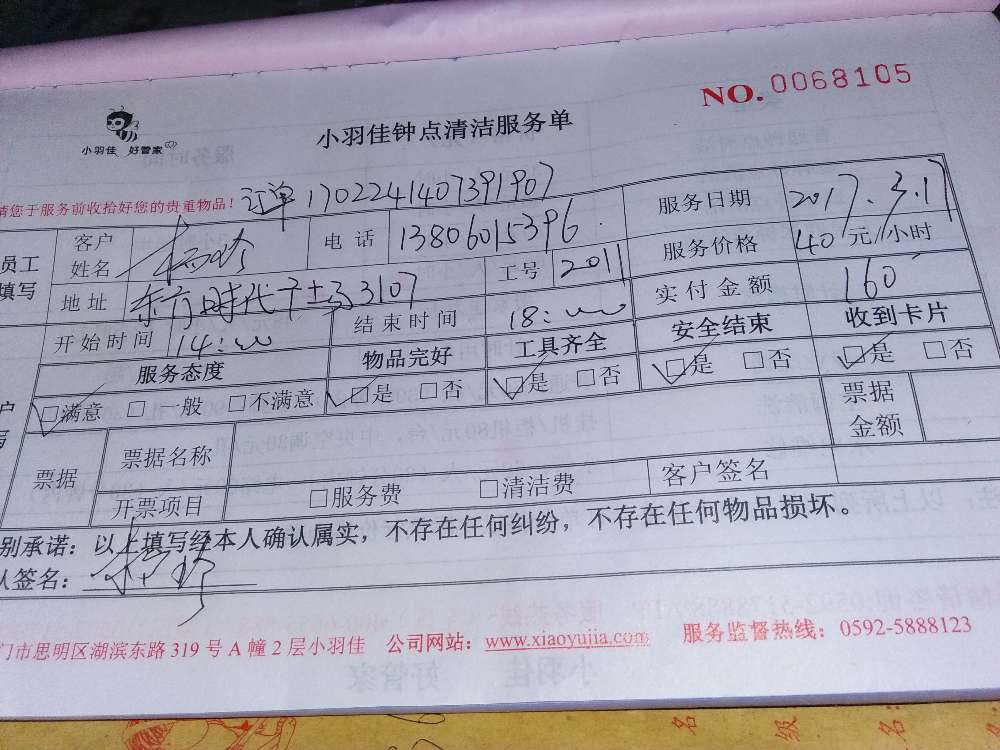 NO.0068105
小羽佳 好管家
小羽佳钟点清洁服务单
请您于服务前收拾好您的贵重物品！ 订单 1702241407391907
员工填写 客户姓名 电话 13806015396 服务日期 2017.3.17
服务价格 40 元/小时
地址 东方时代广场3107 工号 2011 实付金额 160
开始时间 14:00 结束时间 18:00
服务态度 物品完好 工具齐全 安全结束 收到卡片
☑满意 □一般 □不满意 ☑是 □否 ☑是 □否 ☑是 □否 ☑是 □否
票据 票据名称 票据金额
开票项目 □服务费 □清洁费 客户签名
别承诺：以上填写经本人确认属实，不存在任何纠纷，不存在任何物品损坏。
人签名：
门市思明区湖滨东路 319 号 A 幢 2 层小羽佳 公司网站：www.xiaoyujia.com 服务监督热线：0592-5888123